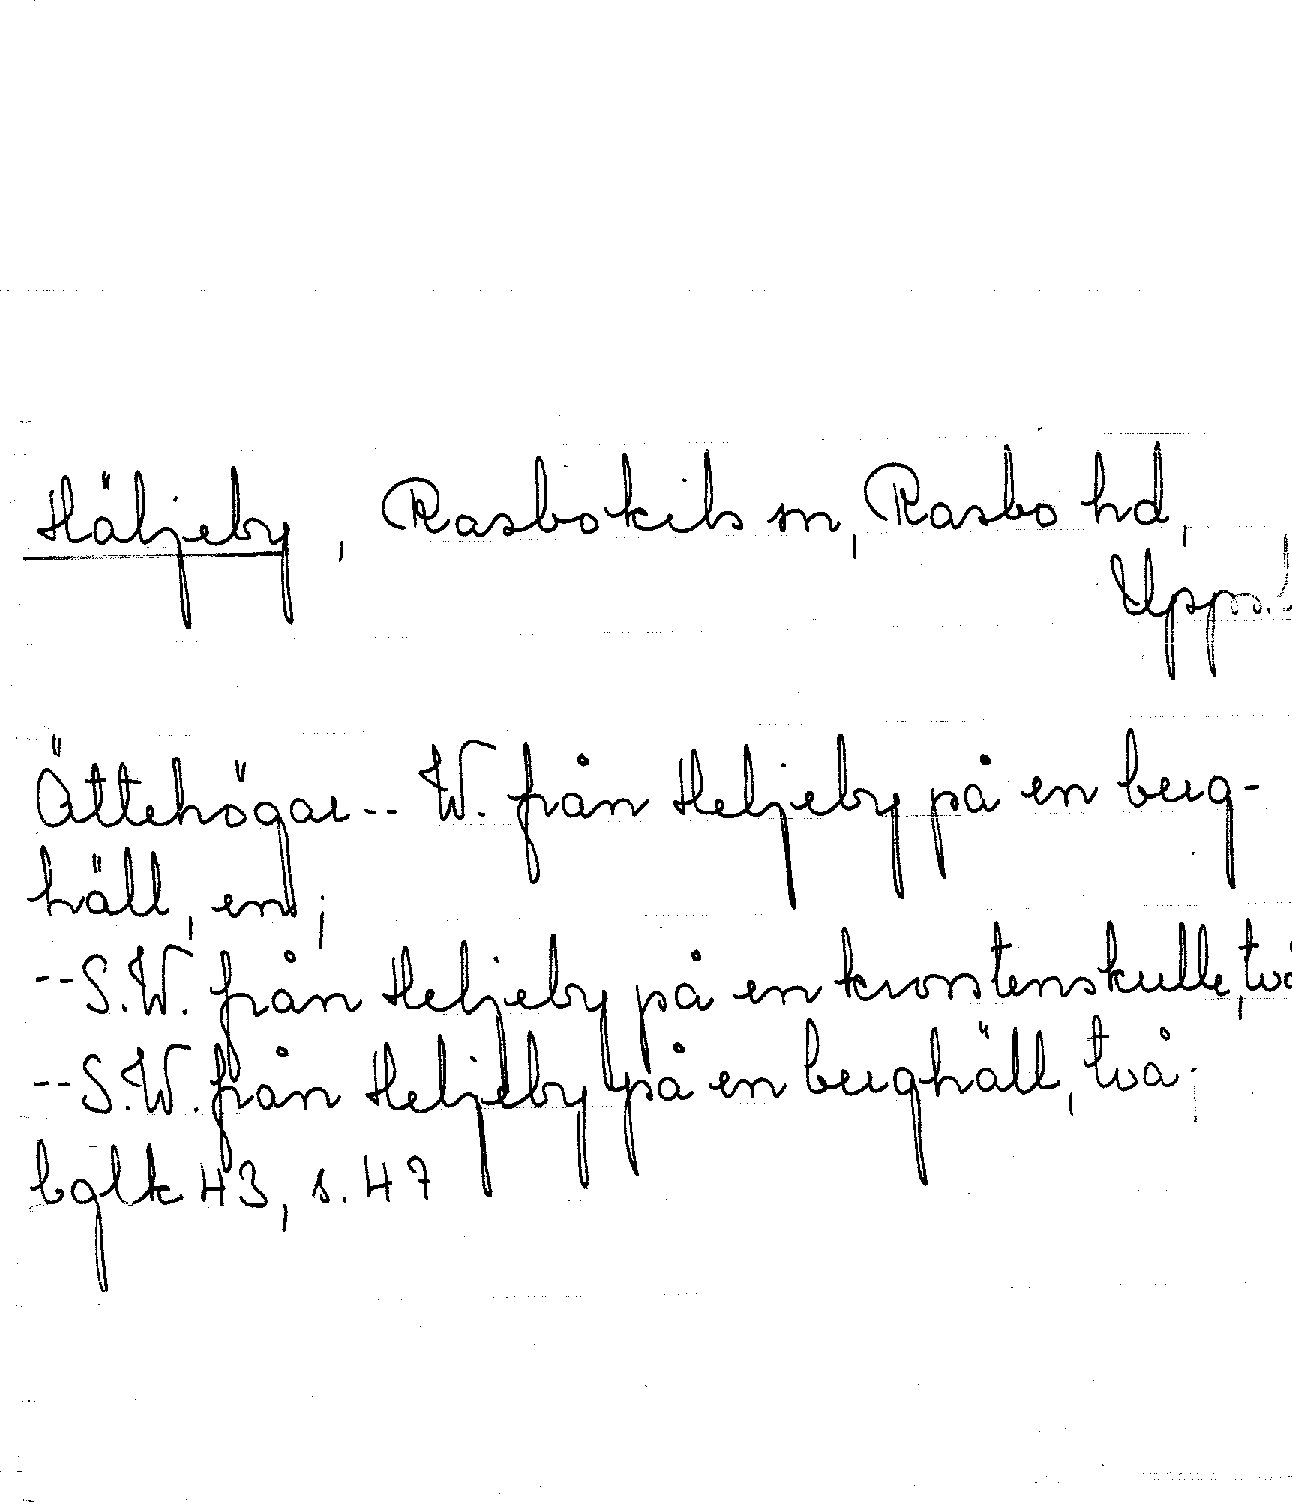 Häljeby, Rasbokils sn, Rasbo hd,
Upps.
Ättehögar -- W. från Heljeby på en berg-
häll, en;
-- S.W. från Heljeby på en krosstenskulle, två
-- S.W. från Heljeby på en berghäll, två.
bglk 43, s. 47